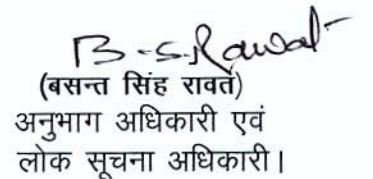 B.S.Rawat
(बसन्त सिंह रावत)
अनुभाग अधिकारी एवं
लोक सूचना अधिकारी।